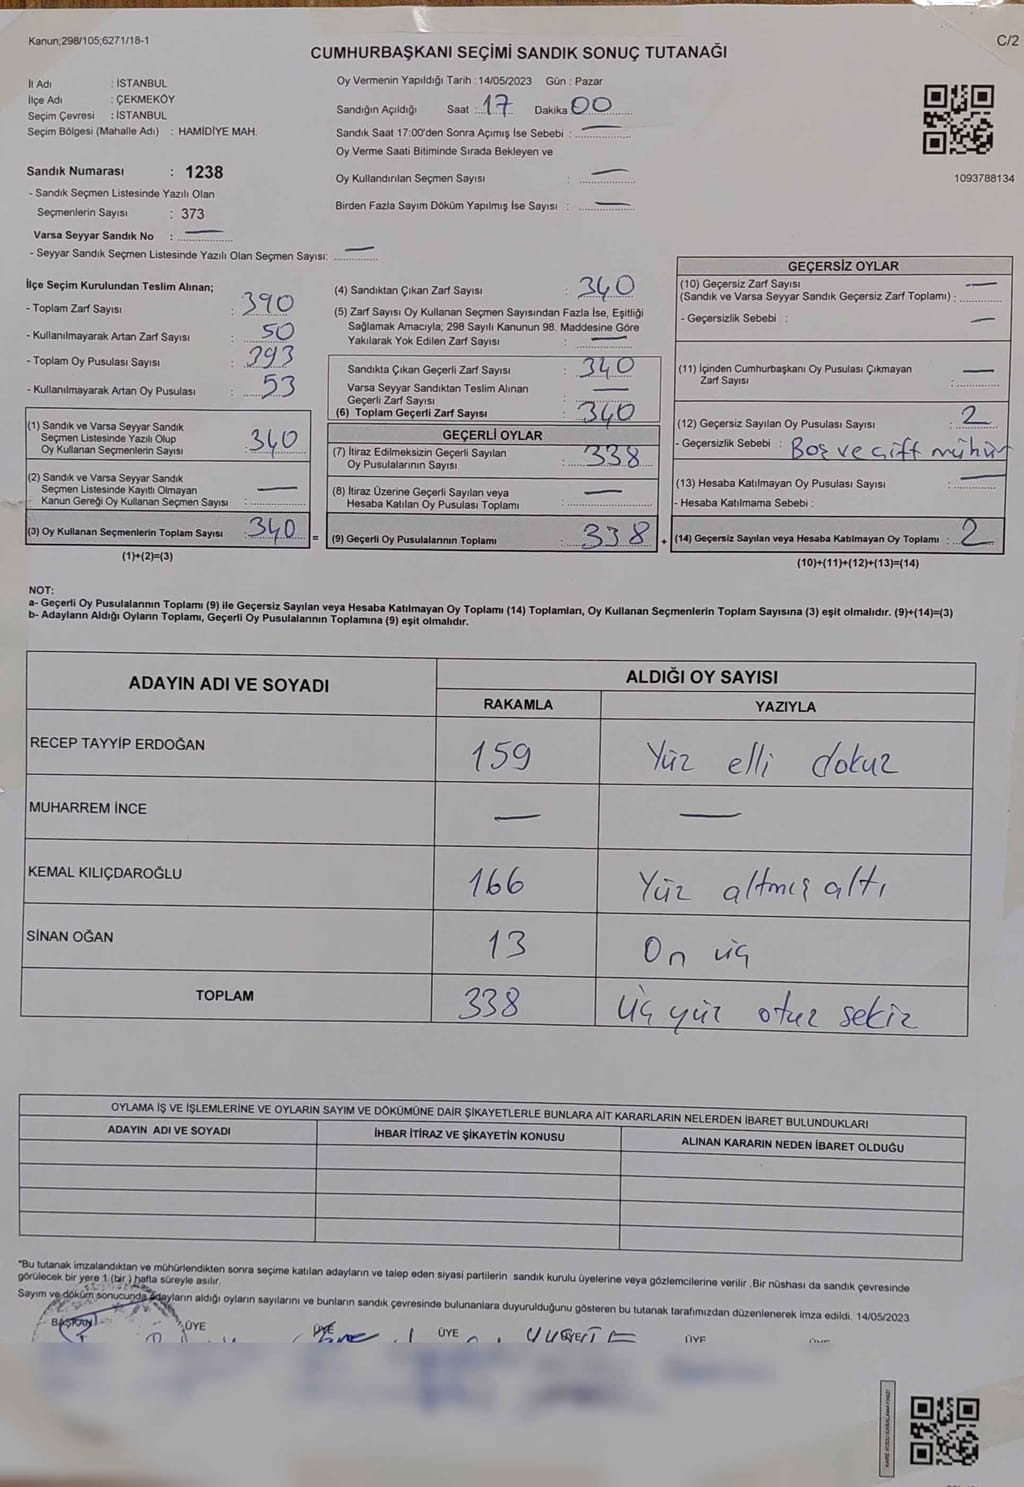 Kanun;298/105;6271/18-1
C/2
CUMHURBAŞKANI SEÇİMİ SANDIK SONUÇ TUTANAĞI
İl Adı : İSTANBUL
İlçe Adı : ÇEKMEKÖY
Seçim Çevresi : İSTANBUL
Seçim Bölgesi (Mahalle Adı) : HAMİDİYE MAH.
Sandık Numarası : 1238
- Sandık Seçmen Listesinde Yazılı Olan
Seçmenlerin Sayısı : 373
Varsa Seyyar Sandık No : —
- Seyyar Sandık Seçmen Listesinde Yazılı Olan Seçmen Sayısı: —
Oy Vermenin Yapıldığı Tarih : 14/05/2023 Gün : Pazar
Sandığın Açıldığı Saat : 17 Dakika 00
Sandık Saat 17:00'den Sonra Açımış İse Sebebi : —
Oy Verme Saati Bitiminde Sırada Bekleyen ve
Oy Kullandırılan Seçmen Sayısı : —
Birden Fazla Sayım Döküm Yapılmış İse Sayısı : —
1093788134
İlçe Seçim Kurulundan Teslim Alınan;
- Toplam Zarf Sayısı : 390
- Kullanılmayarak Artan Zarf Sayısı : 50
- Toplam Oy Pusulası Sayısı : 393
- Kullanılmayarak Artan Oy Pusulası : 53
(1) Sandık ve Varsa Seyyar Sandık
Seçmen Listesinde Yazılı Olup
Oy Kullanan Seçmenlerin Sayısı : 340
(2) Sandık ve Varsa Seyyar Sandık
Seçmen Listesinde Kayıtlı Olmayan
Kanun Gereği Oy Kullanan Seçmen Sayısı : —
(3) Oy Kullanan Seçmenlerin Toplam Sayısı : 340 =
(1)+(2)=(3)
(4) Sandıktan Çıkan Zarf Sayısı : 340
(5) Zarf Sayısı Oy Kullanan Seçmen Sayısından Fazla İse, Eşitliği
Sağlamak Amacıyla; 298 Sayılı Kanunun 98. Maddesine Göre
Yakılarak Yok Edilen Zarf Sayısı : —
Sandıkta Çıkan Geçerli Zarf Sayısı : 340
Varsa Seyyar Sandıktan Teslim Alınan
Geçerli Zarf Sayısı : —
(6) Toplam Geçerli Zarf Sayısı : 340
GEÇERLİ OYLAR
(7) İtiraz Edilmeksizin Geçerli Sayılan
Oy Pusulalarının Sayısı : 338
(8) İtiraz Üzerine Geçerli Sayılan veya
Hesaba Katılan Oy Pusulası Toplamı : —
(9) Geçerli Oy Pusulalarının Toplamı : 338 +
GEÇERSİZ OYLAR
(10) Geçersiz Zarf Sayısı —
(Sandık ve Varsa Seyyar Sandık Geçersiz Zarf Toplamı) :
- Geçersizlik Sebebi : —
(11) İçinden Cumhurbaşkanı Oy Pusulası Çıkmayan
Zarf Sayısı : —
(12) Geçersiz Sayılan Oy Pusulası Sayısı : 2
- Geçersizlik Sebebi : Boş ve çift mühür
(13) Hesaba Katılmayan Oy Pusulası Sayısı : —
- Hesaba Katılmama Sebebi :
(14) Geçersiz Sayılan veya Hesaba Katılmayan Oy Toplamı : 2
(10)+(11)+(12)+(13)=(14)
NOT:
a- Geçerli Oy Pusulalarının Toplamı (9) ile Geçersiz Sayılan veya Hesaba Katılmayan Oy Toplamı (14) Toplamları, Oy Kullanan Seçmenlerin Toplam Sayısına (3) eşit olmalıdır. (9)+(14)=(3)
b- Adayların Aldığı Oyların Toplamı, Geçerli Oy Pusulalarının Toplamına (9) eşit olmalıdır.
ADAYIN ADI VE SOYADI ALDIĞI OY SAYISI
RAKAMLA YAZIYLA
RECEP TAYYİP ERDOĞAN 159 Yüz elli dokuz
MUHARREM İNCE — —
KEMAL KILIÇDAROĞLU 166 Yüz altmış altı
SİNAN OĞAN 13 On üç
TOPLAM 338 üç yüz otuz sekiz
OYLAMA İŞ VE İŞLEMLERİNE VE OYLARIN SAYIM VE DÖKÜMÜNE DAİR ŞİKAYETLERLE BUNLARA AİT KARARLARIN NELERDEN İBARET BULUNDUKLARI
ADAYIN ADI VE SOYADI İHBAR İTİRAZ VE ŞİKAYETİN KONUSU ALINAN KARARIN NEDEN İBARET OLDUĞU
*Bu tutanak imzalandıktan ve mühürlendikten sonra seçime katılan adayların ve talep eden siyasi partilerin sandık kurulu üyelerine veya gözlemcilerine verilir .Bir nüshası da sandık çevresinde
görülecek bir yere 1 (bir ) hafta süreyle asılır.
Sayım ve döküm sonucunda adayların aldığı oyların sayılarını ve bunların sandık çevresinde bulunanlara duyurulduğunu gösteren bu tutanak tarafımızdan düzenlenerek imza edildi. 14/05/2023
BAŞKAN ÜYE ÜYE ÜYE ÜYE ÜYE